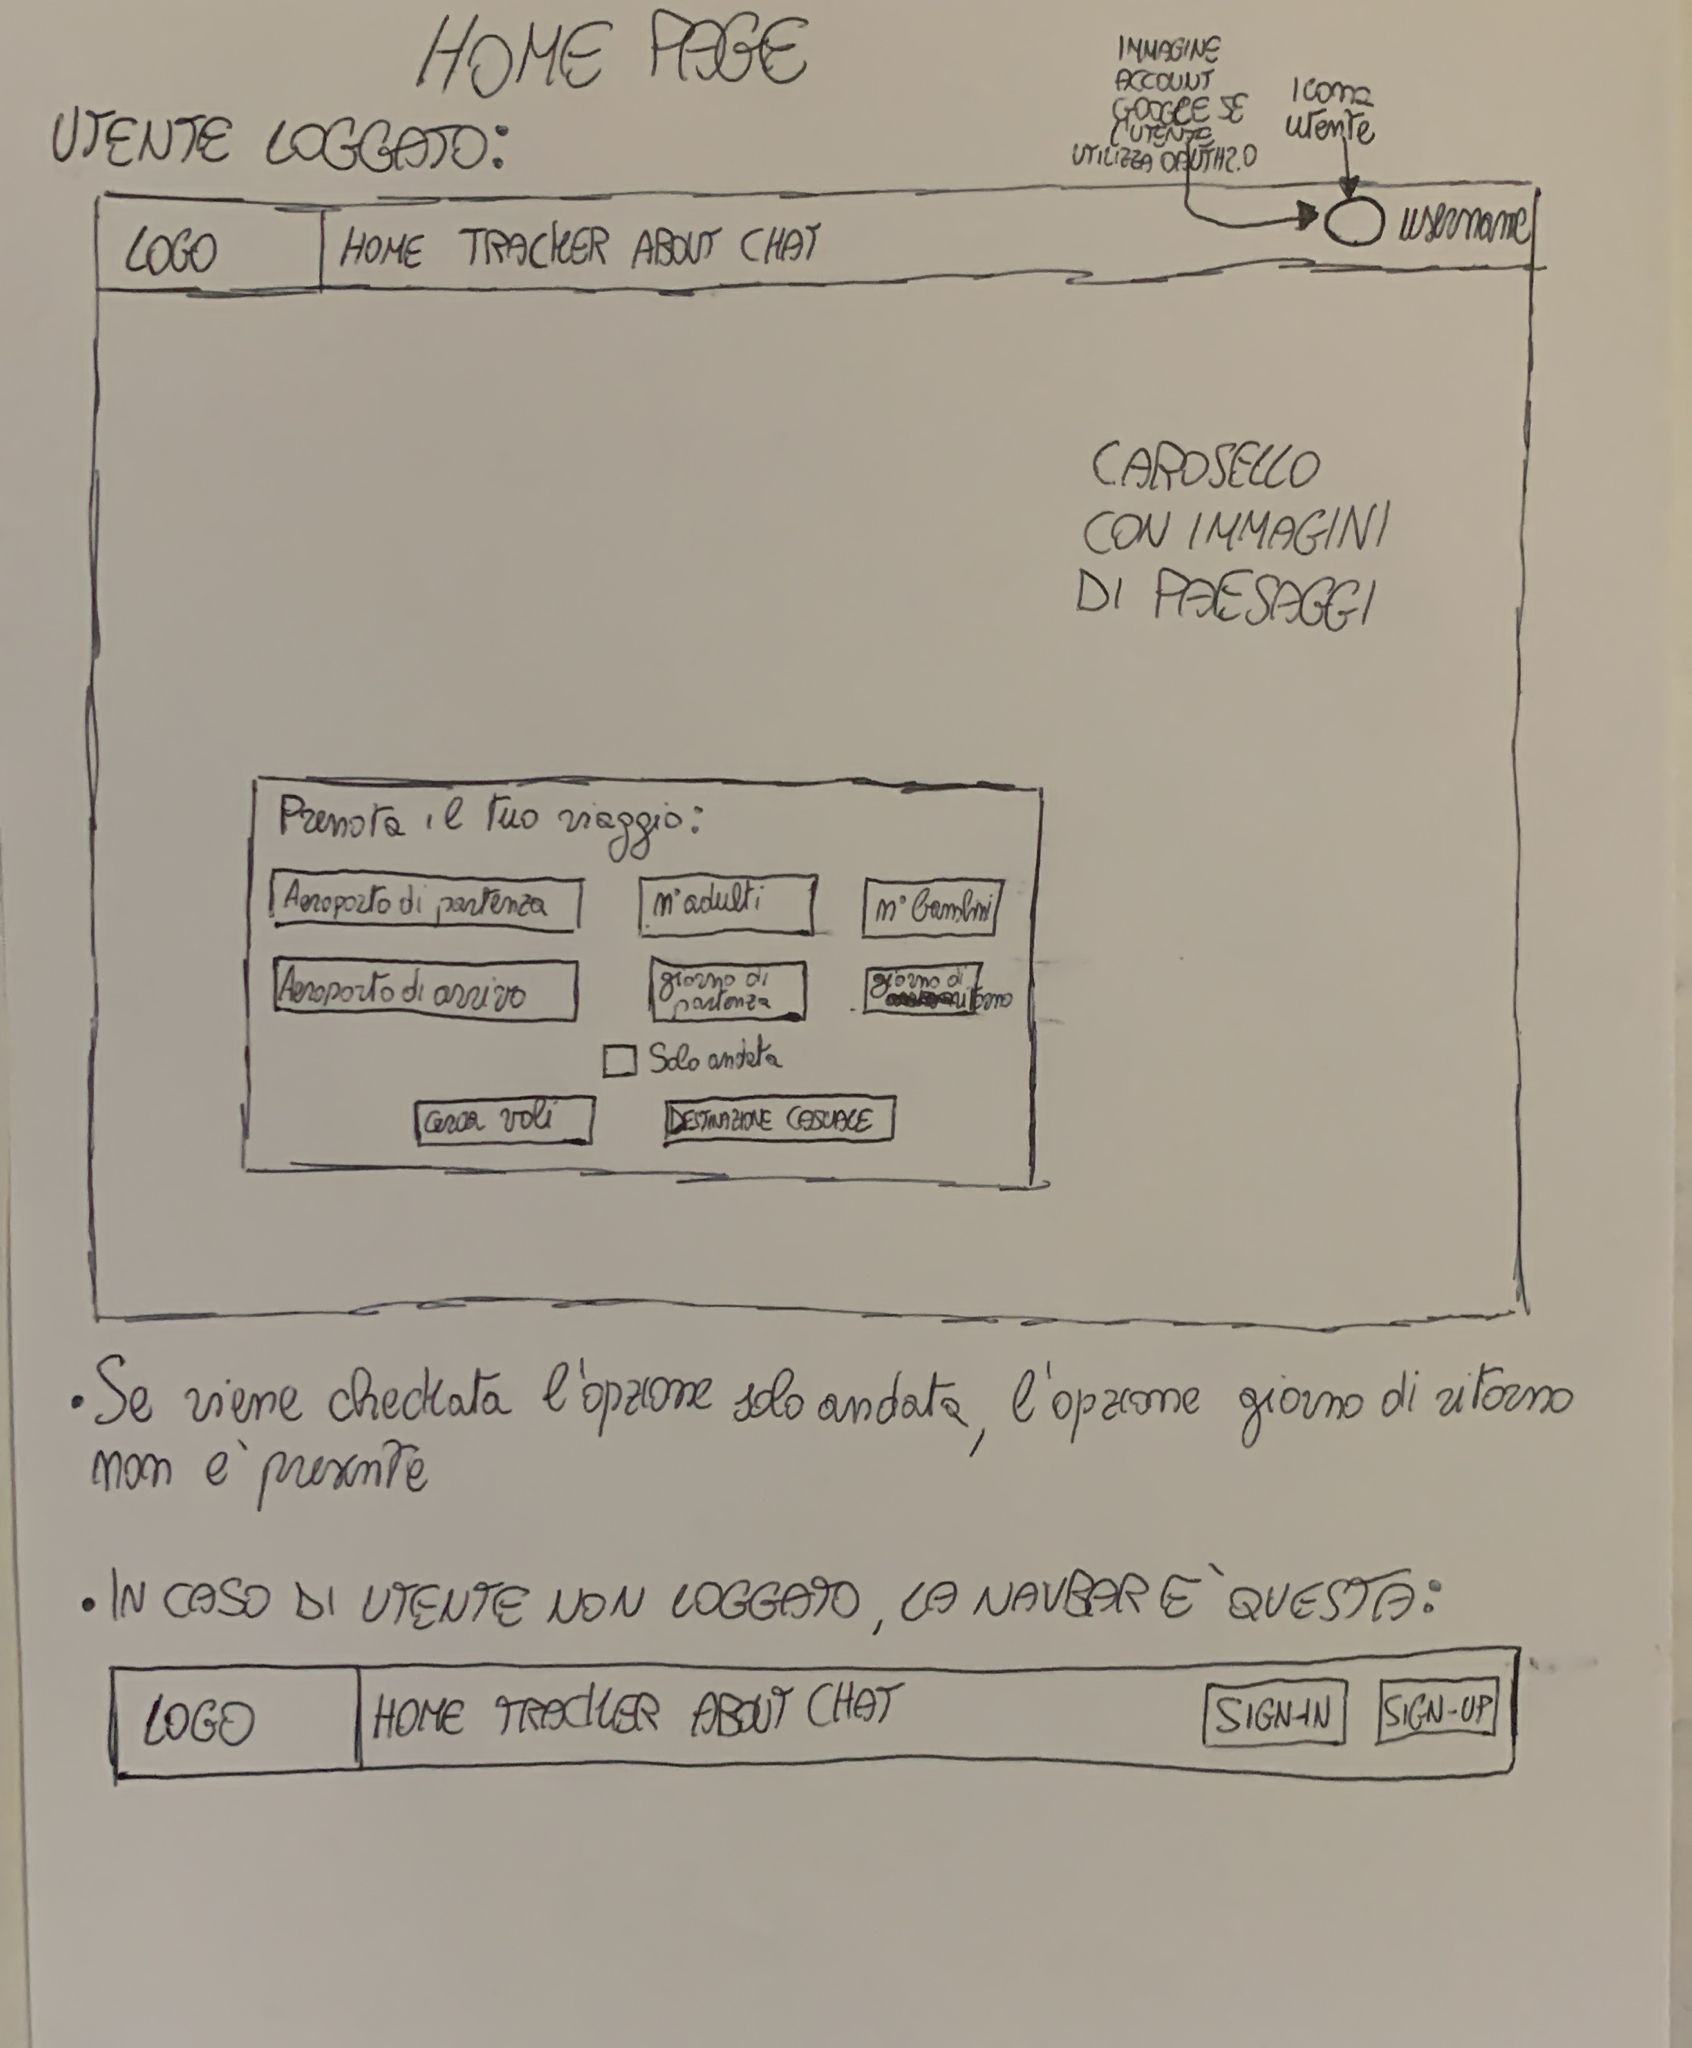 HOME PAGE
UTENTE LOGGATO:
IMMAGINE
ACCOUNT
GOOGLE SE
L'UTENTE
UTILIZZA OAUTH2.0
Icona
utente
LOGO HOME TRACKER ABOUT CHAT username
CAROSELLO
CON IMMAGINI
DI PAESAGGI
Prenota il tuo viaggio:
Aeroporto di partenza n° adulti n° bambini
Aeroporto di arrivo giorno di partenza giorno di ritorno
Solo andata
Cerca voli DESTINAZIONE CASUALE
• Se viene checkata l'opzione solo andata, l'opzione giorno di ritorno
non è presente
• IN CASO DI UTENTE NON LOGGATO, LA NAVBAR E' QUESTA:
LOGO HOME TRACKER ABOUT CHAT SIGN-IN SIGN-UP